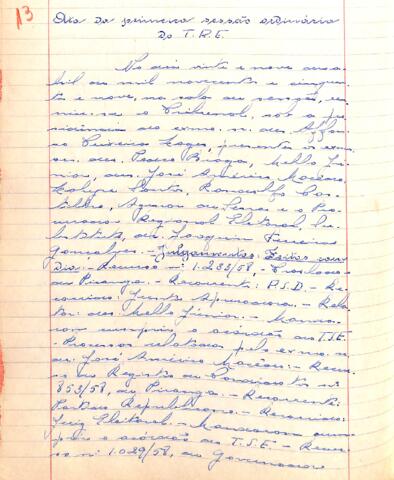 13
Ata da primeira sessão ordinária
do T.R.E.
Aos dias vinte e nove
abril de mil novecentos e cinquen-
ta e nove, na sala de sessões, reu-
niu-se o Tribunal, sob a pre-
sidência do exmo. sr. des. Affon-
so Teixeira Lages, presentes os exmos.
srs. des. Mello Jú-
nior, drs. José Américo Macêdo,
Santos,
e o Pro-
curador Regional Eleitoral, su-
dr. Joaquim Ferreira
Gonçalves. - Julgamentos: Feitos com
Dia: - Recurso nº 1.233/58, -
de Piranga. - Recorrente: P.S.D. - Re-
corrida: Junta Apuradora. - Rela-
tor: des. Mello Júnior. - Manda-
ram cumprir o acórdão do T.S.E.
- Processos relatados pelo exmo. sr.
dr. José Américo Macêdo: - Recur-
so de Registro de Candidato nº
853/58, de Piranga. - Recorrente:
Partido Republicano. - Recorrido:
Juiz Eleitoral. - Mandaram cum-
prir o acórdão do T.S.E. - Recur-
so nº 1.029/58, de Governador